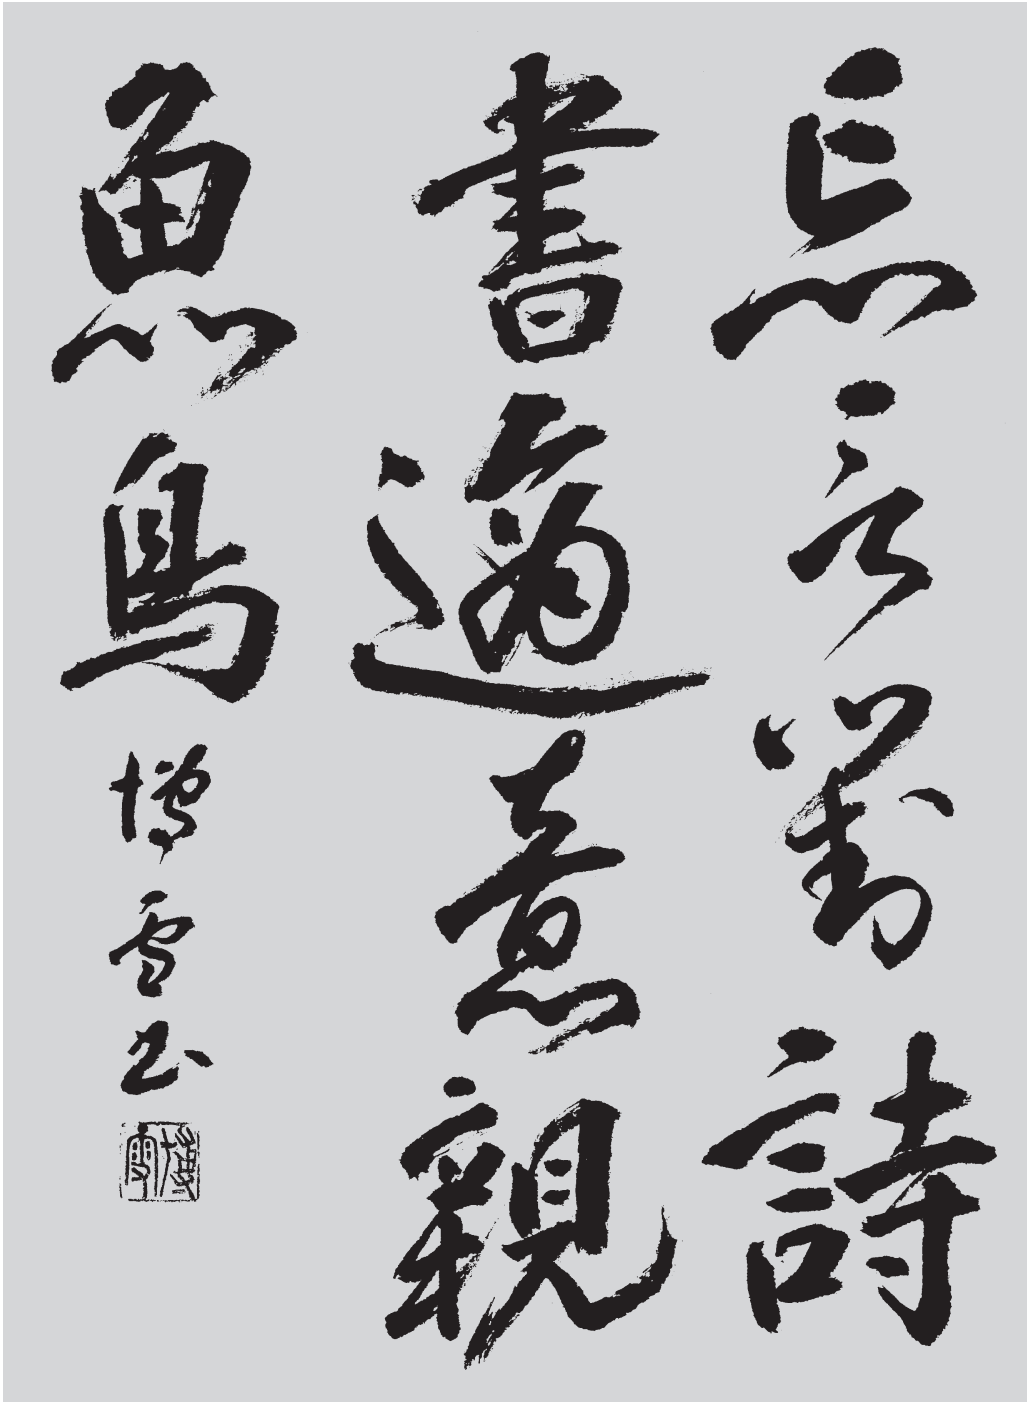 忘言對詩
書適意親
魚鳥
博雪书
博雪